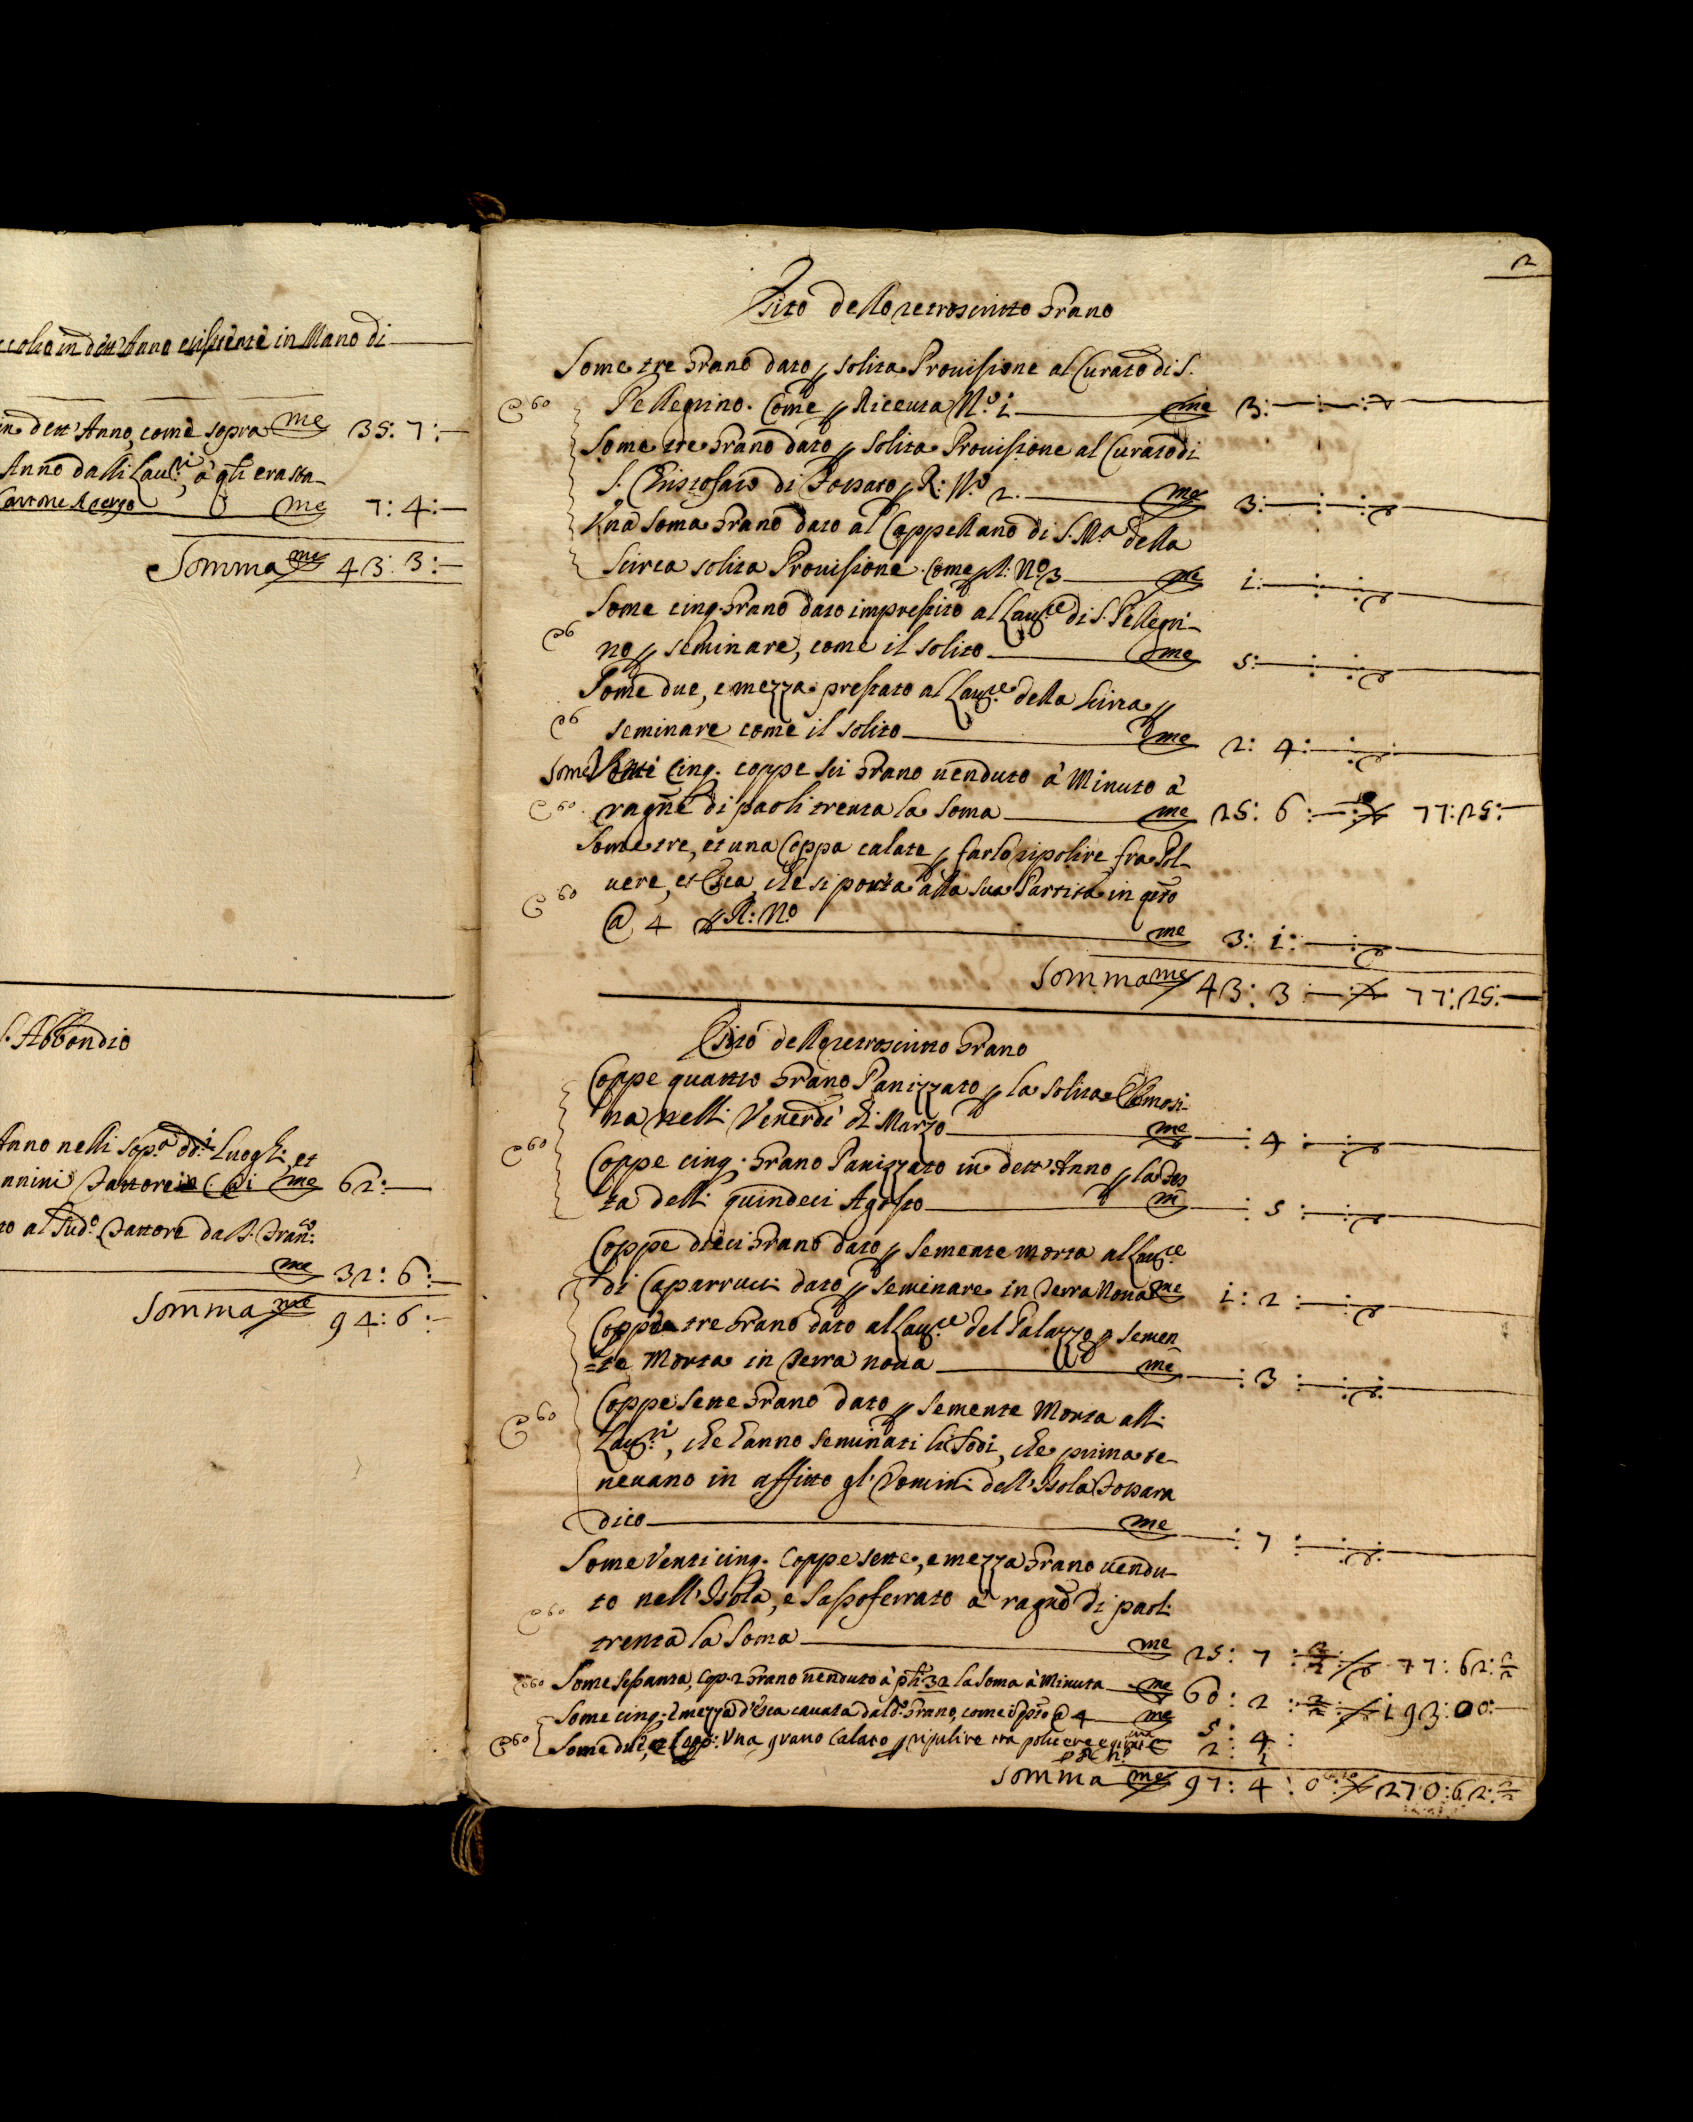 in dett'Anno esistente in Mano di
in dett'Anno, come sopra me 35: 7:
Anno dalli Lau:ri, à q̃li era sta-
me 7: 4:
Somma me 43: 3:
S. Abbondio
Anno nelli sop:a dd:i Luoghi, et
nnini Fattore me 62:
to al sud:o Fattore da S. Fran:co
me 32: 6:
Somma me 94: 6:
2
Esito dello retroscritto Grano
Some tre Grano dato p solita Prouisione al Curato di S.
@ 60 Pellegrino. Come p Riceuta N:o 1 me 3:
Some tre Grano dato p solita Prouisione al Curato di
S. Christofaro di Fossato p R: N:o 2. me 3:
Vna Soma Grano dato al Cappellano di S. M:a della
Scirca solita Prouisione. Come p R: No 3 me 1:
Some cinq. Grano dato imprestito al Lau:re di S. Pellegri-
@6 no p seminare, come il solito me 5:
Some due, e mezza prestato al Lau:re della Scirca p
@6 seminare come il solito me 2: 4:
Some Venti Cinq. coppe sei Grano uenduto à Minuto à
@ 60 ragñe di paoli trenta la Soma me 25: 6: 77: 25:
Some tre, et una Coppa calate p farlo ripolire fra Pol-
uere, et Esca, che si porta alla sua Partita in q̃sto
@ 60 @ 4 p R: No me 3: 1:
Somma me 43: 3 77: 25:
Esito dello retroscritto Grano
Coppe quattro Grano Panizzato p la solita Elemosi-
na nelli Venerdì di Marzo me : 4 :
@ 60 Coppe cinq. Grano Panizzato in dett'Anno p la Fes
ta delli quindeci Agosto m : 5 :
Coppe dieci Grano dato p Semente Morta al Lau:re
di Caparrucci dato p seminare in Terra Noua me 1: 2 :
Coppe tre Grano dato al Lau:re del Palazzo p Semen
=te Morta in Terra noua me : 3 :
Coppe sette Grano dato p Semente Morta alli
@ 60 Lau:ri, che hanno Seminati li Sodi, che prima te-
neuano in affitto gl'Homini dell'Isola Fossara
dico me : 7 :
Some Venti cinq. Coppe sette, e mezza Grano uendu-
@ 60 to nell'Isola, e Sassoferrato à ragñe di paoli
trenta la Soma me 25: 7 : 1/2 77: 62: 1/2
@60 Some Sessanta, Cop. 2 Grano uenduto à pli 32 la Soma à Minuta me 60: 2 : 193: 00:
Some cinq. e mezza d'Esca cauata dal d:o Grano, come @ 4 me 5: 4:
@ 60 Some due, e Cop: Vna grano Calato p ripulire tra poluere 2: 1
Somma me 97: 4 : 0 270: 62: 1/2